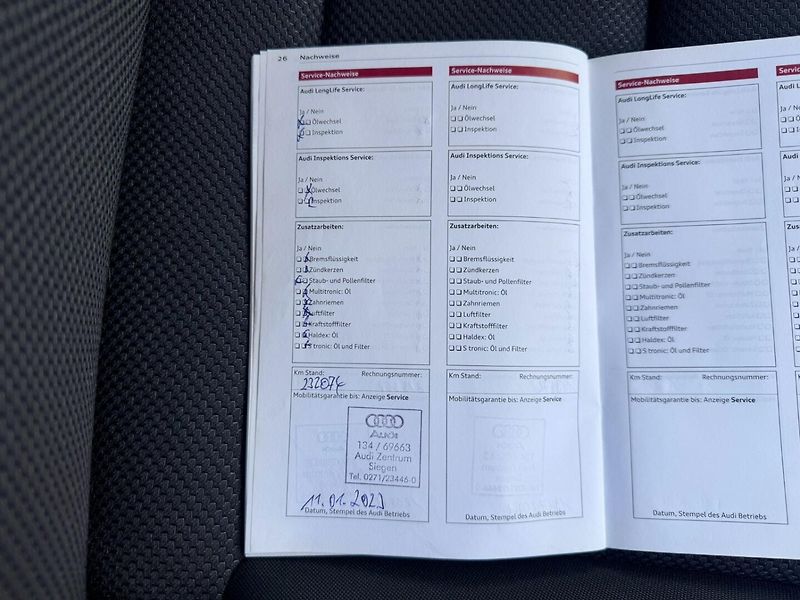 26 Nachweise
Service-Nachweise
Audi LongLife Service:
Ja / Nein
Ölwechsel
Inspektion
Audi Inspektions Service:
Ja / Nein
Ölwechsel
Inspektion
Zusatzarbeiten:
Ja / Nein
Bremsflüssigkeit
Zündkerzen
Staub- und Pollenfilter
Multitronic: Öl
Zahnriemen
Luftfilter
Kraftstofffilter
Haldex: Öl
S tronic: Öl und Filter
Km Stand: Rechnungsnummer:
232074
Mobilitätsgarantie bis: Anzeige Service
Audi
134 / 69663
Audi Zentrum
Siegen
Tel. 0271/23446-0
11.01.2023
Datum, Stempel des Audi Betriebs
Service-Nachweise
Audi LongLife Service:
Ja / Nein
Ölwechsel
Inspektion
Audi Inspektions Service:
Ja / Nein
Ölwechsel
Inspektion
Zusatzarbeiten:
Ja / Nein
Bremsflüssigkeit
Zündkerzen
Staub- und Pollenfilter
Multitronic: Öl
Zahnriemen
Luftfilter
Kraftstofffilter
Haldex: Öl
S tronic: Öl und Filter
Km Stand: Rechnungsnummer:
Mobilitätsgarantie bis: Anzeige Service
Datum, Stempel des Audi Betriebs
Service-Nachweise
Audi LongLife Service:
Ja / Nein
Ölwechsel
Inspektion
Audi Inspektions Service:
Ja / Nein
Ölwechsel
Inspektion
Zusatzarbeiten:
Ja / Nein
Bremsflüssigkeit
Zündkerzen
Staub- und Pollenfilter
Multitronic: Öl
Zahnriemen
Luftfilter
Kraftstofffilter
Haldex: Öl
S tronic: Öl und Filter
Km Stand: Rechnungsnummer:
Mobilitätsgarantie bis: Anzeige Service
Datum, Stempel des Audi Betriebs